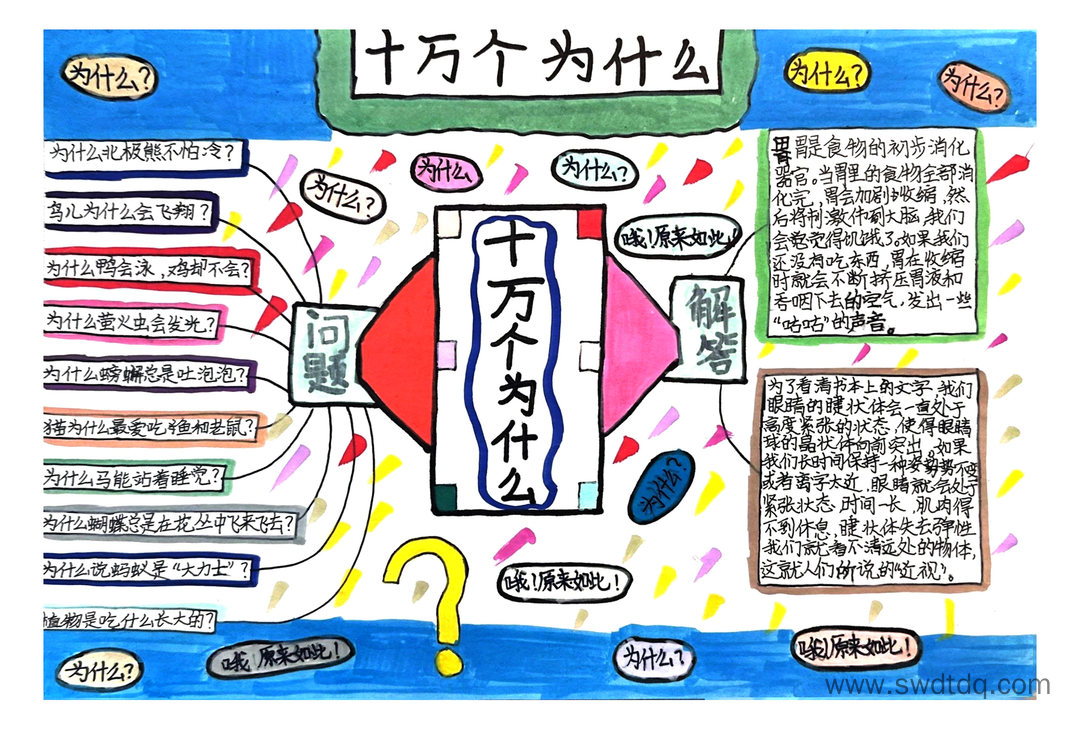 十万个为什么
为什么?
为什么?
为什么?
为什么北极熊不怕冷?
鸟儿为什么会飞翔?
为什么鸭会泳,鸡却不会?
为什么萤火虫会发光?
为什么螃蟹总是吐泡泡?
猫为什么最爱吃鱼和老鼠?
为什么马能站着睡觉?
为什么蝴蝶总是在花丛中飞来飞去?
为什么说蚂蚁是“大力士”?
植物是吃什么长大的?
为什么?
为什么
为什么?
哦!原来如此!
问题
十万个为什么
解答
胃是食物的初步消化
器官。当胃里的食物全部消
化完,胃会加剧收缩,然
后将刺激传到大脑,我们
会感觉得饥饿了。如果我们
还没有吃东西,胃在收缩
时就会不断挤压胃液和
吞咽下去的空气,发出一些
“咕咕”的声音。
为了看清书本上的文字,我们
眼睛的睫状体会一直处于
高度紧张的状态,使得眼睛
球的晶状体向前突出。如果
我们长时间保持一种姿势不变
或者离字太近,眼睛就会处于
紧张状态,时间一长,肌肉得
不到休息,睫状体失去弹性
我们就看不清远处的物体,
这就人们所说的“近视”。
为什么?
哦!原来如此!
?
为什么?
哦!原来如此!
为什么?
哦!原来如此!
www.swdtdq.com